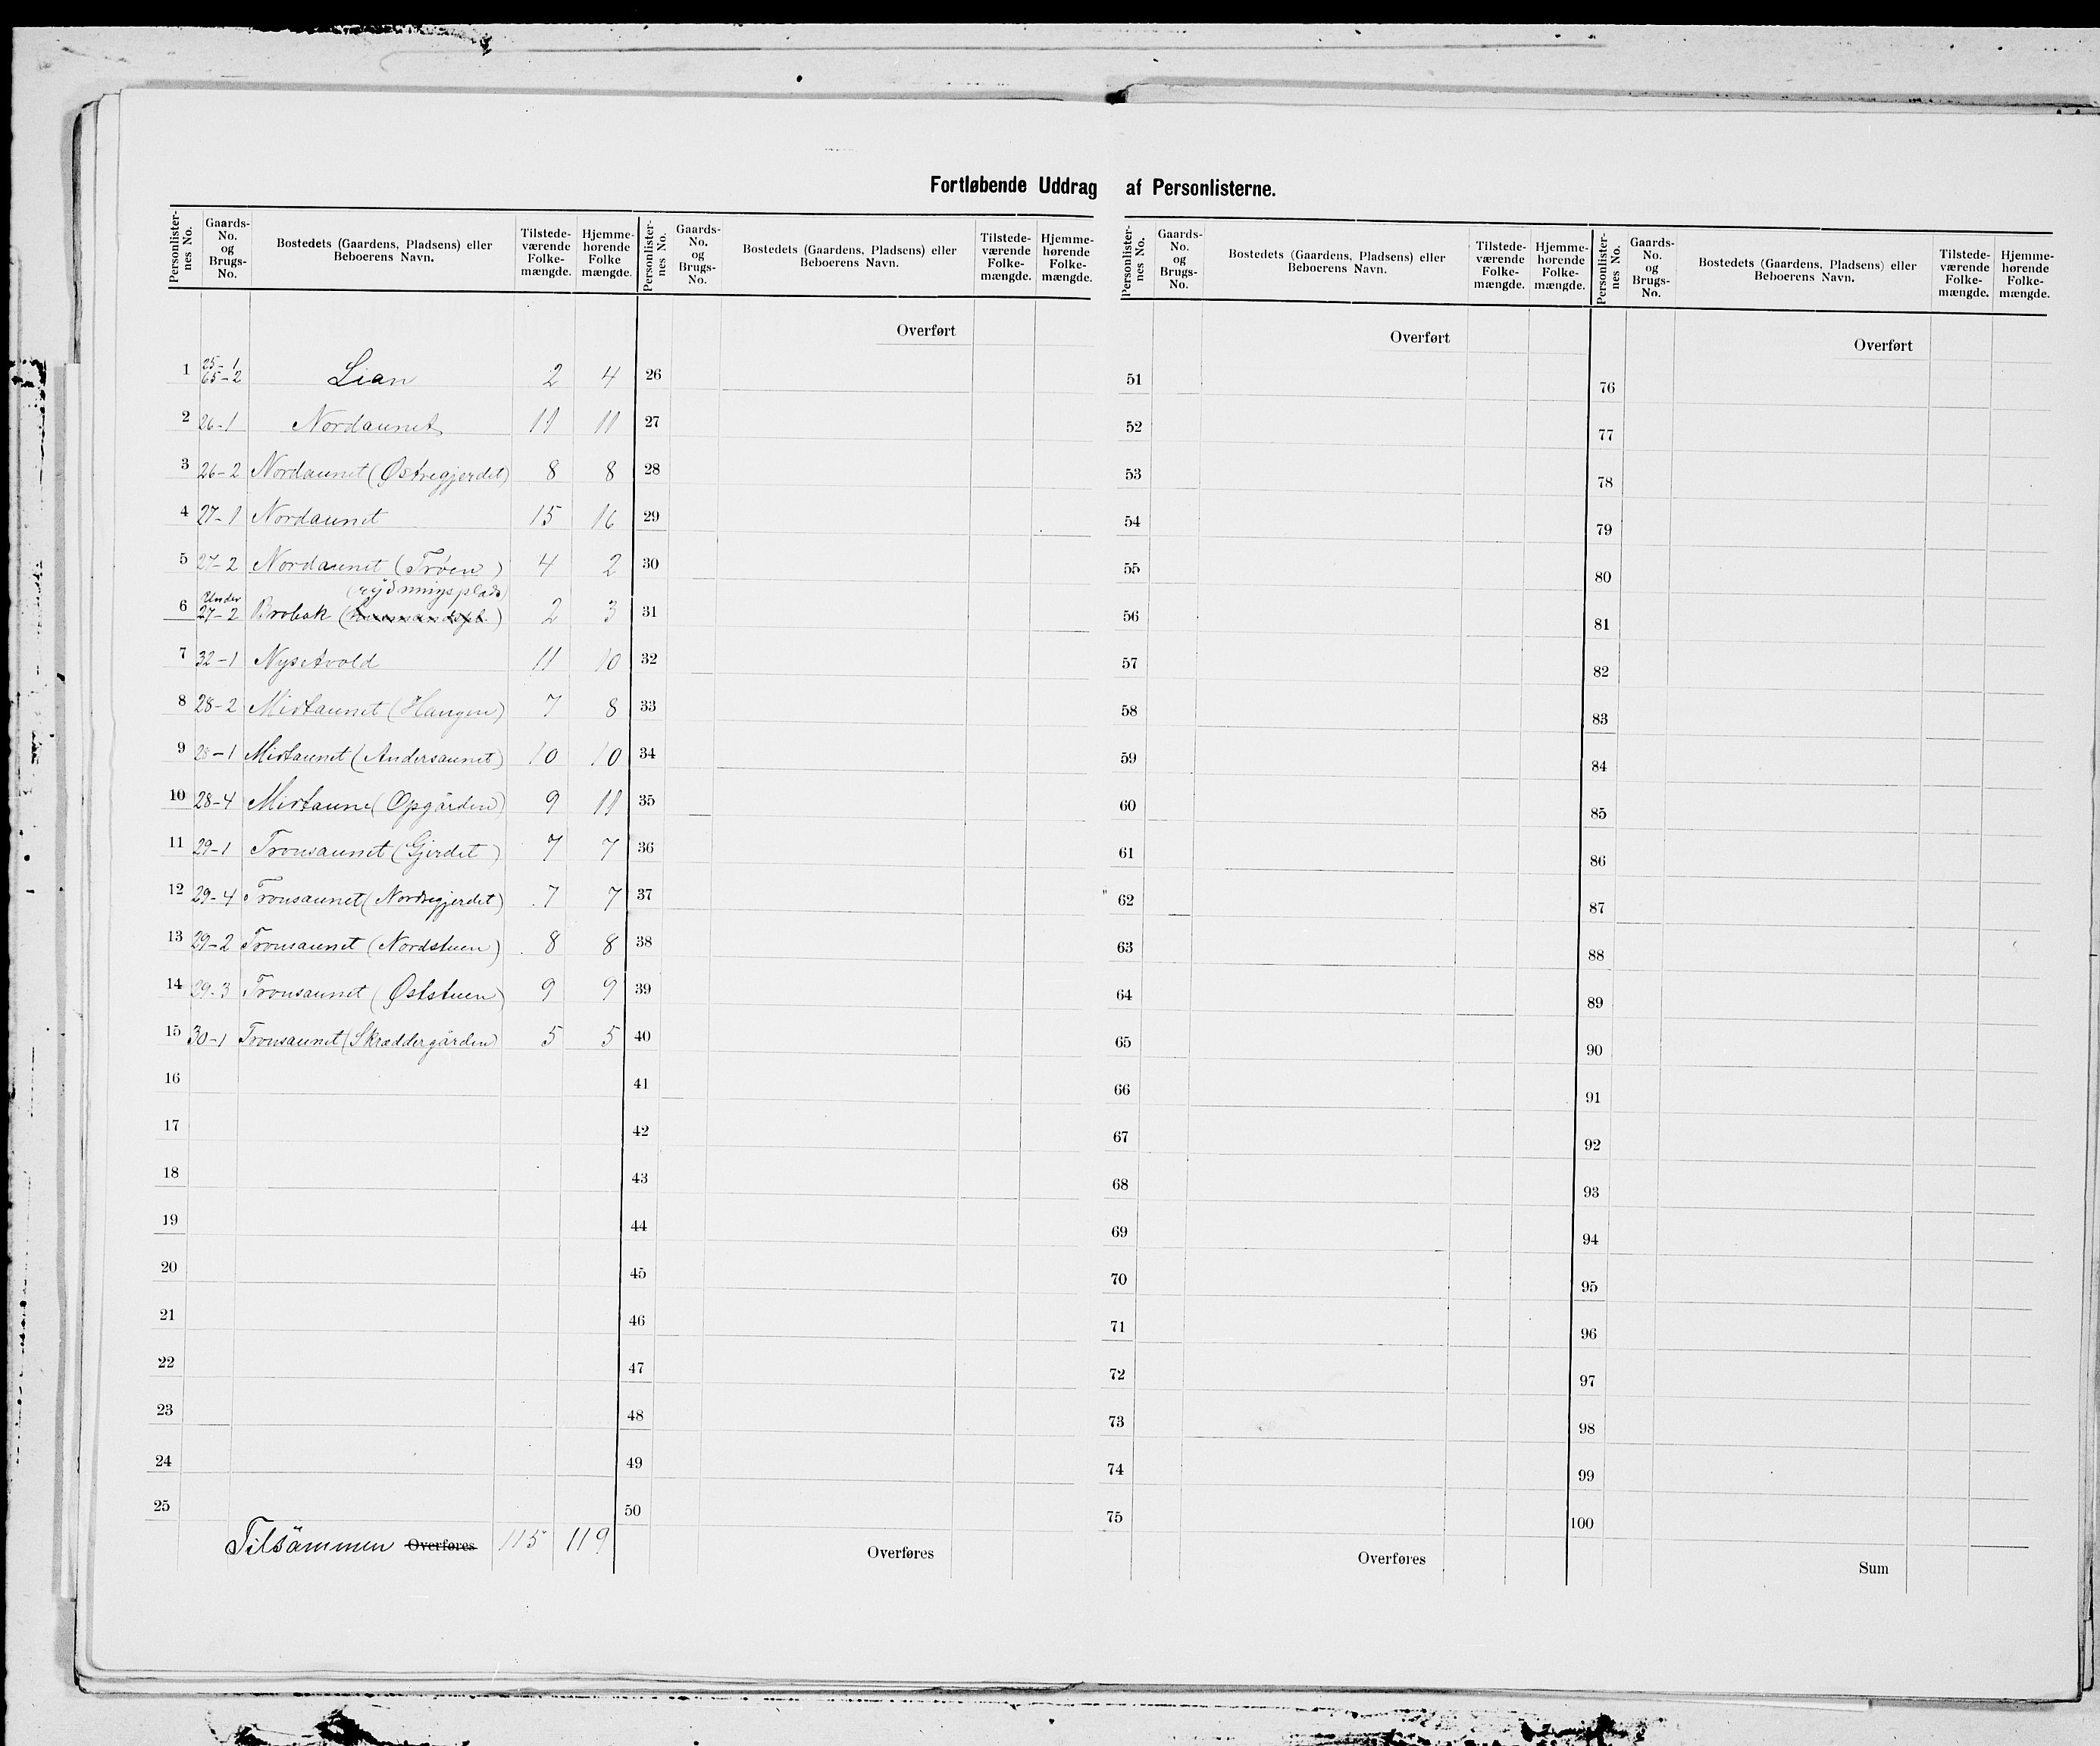 Fortløbende Uddrag af Personlisterne.
Personlister-nes No. | Gaards-No. og Brugs-No. | Bostedets (Gaardens, Pladsens) eller Beboerens Navn. | Tilstede-værende Folke-mængde. | Hjemme-hørende Folke mængde.
Personlister-nes No. | Gaards-No. og Brugs-No. | Bostedets (Gaardens, Pladsens) eller Beboerens Navn. | Tilstede-værende Folke-mængde. | Hjemme-hørende Folke-mængde.
Personlister-nes No. | Gaards-No. og Brugs-No. | Bostedets (Gaardens, Pladsens) eller Beboerens Navn. | Tilstede-værende Folke-mængde. | Hjemme-hørende Folke-mængde.
Personlister-nes No. | Gaards-No. og Brugs-No. | Bostedets (Gaardens, Pladsens) eller Beboerens Navn. | Tilstede-værende Folke-mængde. | Hjemme-hørende Folke-mængde.
1 25-1 65-2 Lian 2 4
2 26-1 Nordaunet 11 11
3 26-2 Nordaunet (Østregjerdet) 8 8
4 27-1 Nordaunet 15 16
5 27-2 Nordaunet (Trøen) 4 2
(rydningsplads)
6 Under 27-2 Brobak 2 3
7 32-1 Nysetvold 11 10
8 28-2 Mistaunet (Haugen) 7 8
9 28-1 Mistaunet (Andersaunet) 10 10
10 28-4 Mistaune (Opgården) 9 11
11 29-1 Tronsaunet (Gjerdet) 7 7
12 29-4 Tronsaunet (Nordregjerdet) 7 7
13 29-2 Tronsaunet (Nordstuen) 8 8
14 29-3 Tronsaunet (Øststuen) 9 9
15 30-1 Tronsaunet (Skræddergården) 5 5
16
17
18
19
20
21
22
23
24
25
Tilsammen Overføres 115 119
Overført
26
27
28
29
30
31
32
33
34
35
36
37
38
39
40
41
42
43
44
45
46
47
48
49
50
Overføres
Overført
51
52
53
54
55
56
57
58
59
60
61
62
63
64
65
66
67
68
69
70
71
72
73
74
75
Overføres
Overført
76
77
78
79
80
81
82
83
84
85
86
87
88
89
90
91
92
93
94
95
96
97
98
99
100
Sum